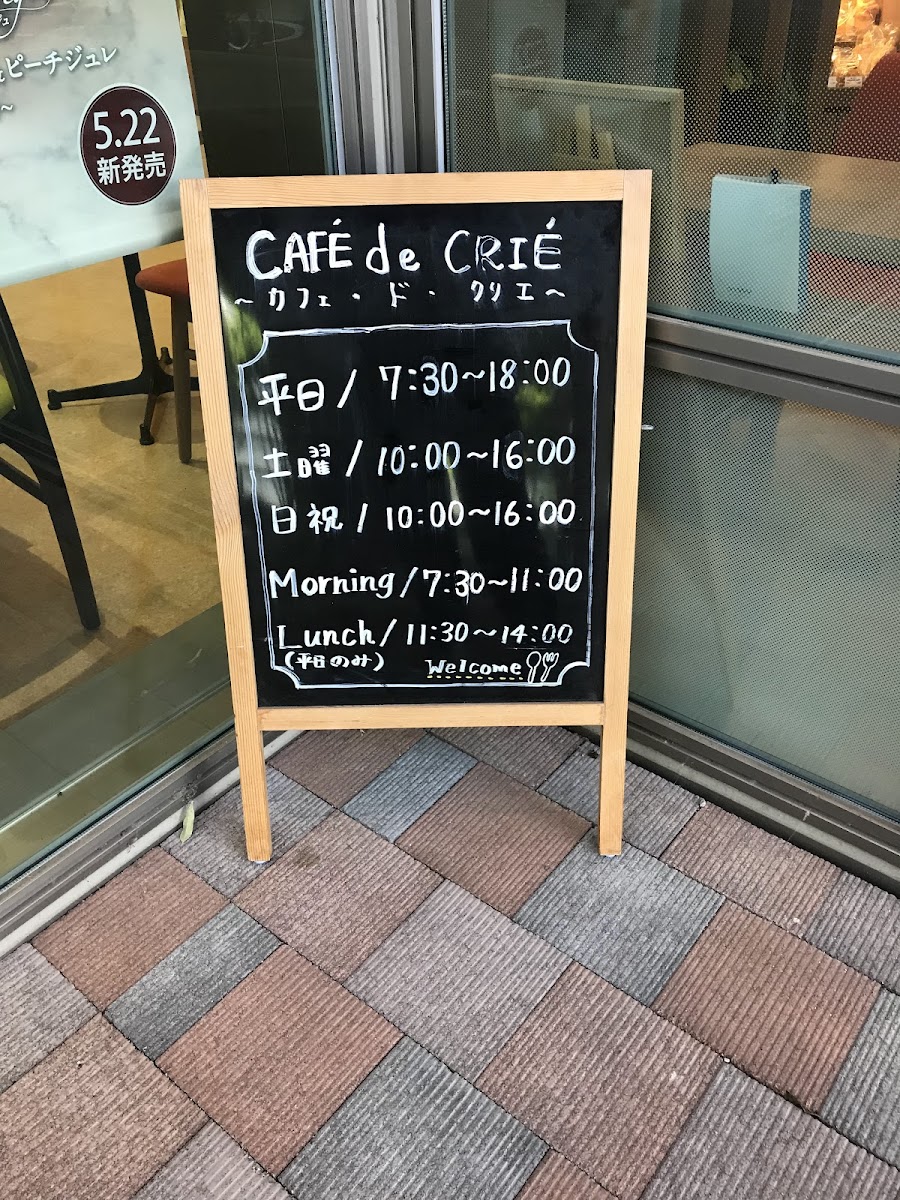 ピーチジュレ
～
5.22
新発売
CAFÉ de CRIÉ
～カフェ・ド・クリエ～
平日/ 7:30～18:00
土曜/10:00～16:00
日祝/10:00～16:00
Morning/7:30～11:00
Lunch/11:30～14:00
(平日のみ)
Welcome